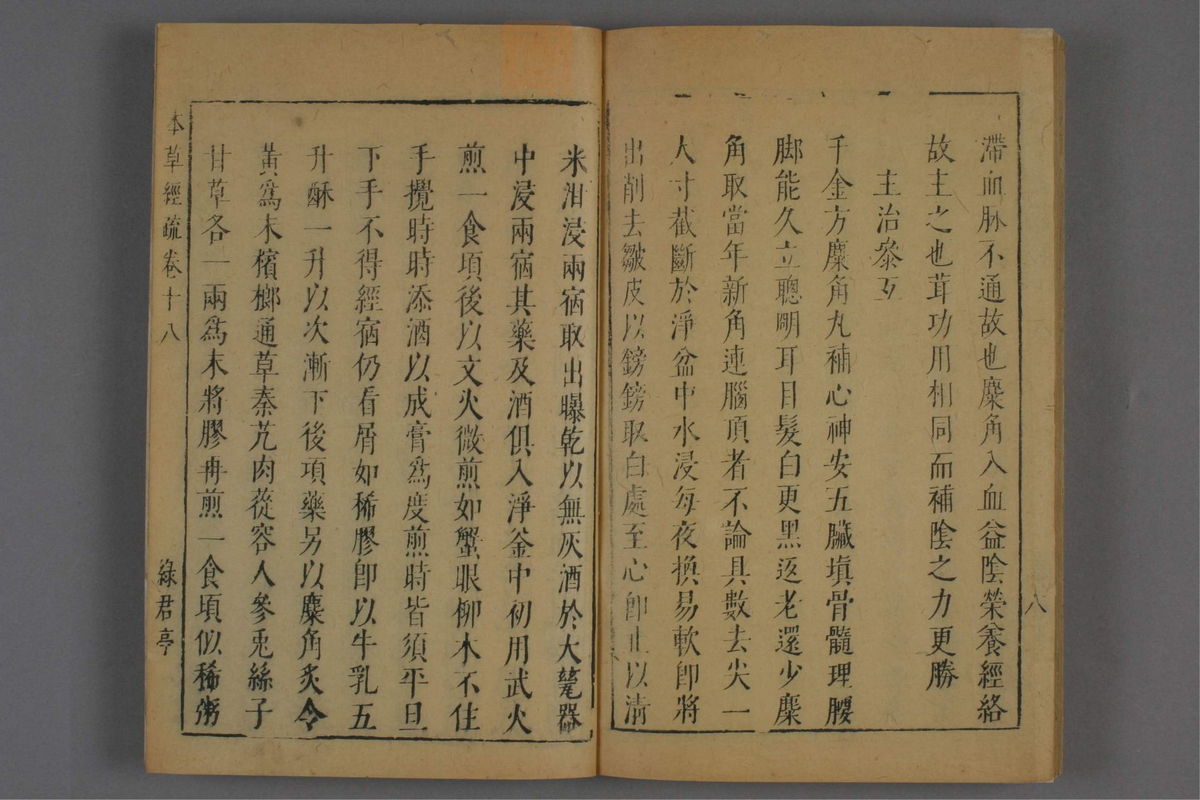 滯血脉不通故也麋角入血益陰榮養經絡
故主之也茸功用相同而補陰之力更勝
主治參互
千金方麋角丸補心神安五臟塡骨髓理腰
脚能久立聰明耳目髮白更黑返老還少麋
角取當年新角連腦頂者不論具數去尖一
大寸截斷於淨盆中水浸每夜換易軟卽將
出削去皺皮以鎊鎊取白處至心卽止以淸
八
米泔浸兩宿取出曝乾以無灰酒於大甆器
中浸兩宿其藥及酒俱入淨釜中初用武火
煎一食頃後以文火微煎如蟹眼柳木不住
手攪時時添酒以成膏爲度煎時皆須平旦
下手不得經宿仍看屑如稀膠卽以牛乳五
升酥一升以次漸下後項藥另以麋角炙令
黃爲末檳榔通草秦艽肉蓯容人參兎絲子
甘草各一兩爲末將膠再煎一食頃似稀粥
本草經疏卷十八
綠君亭